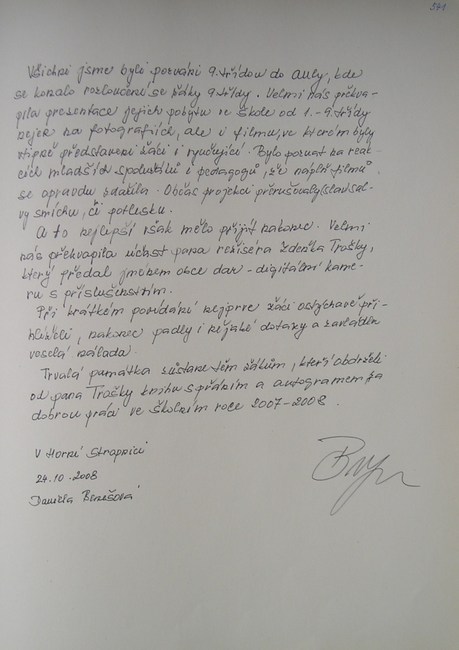 371
Všichni jsme byli pozváni 9. třídou do auly, kde
se konalo rozloučení se žáky 9. třídy. Velmi nás překva-
pila prezentace jejich pobytu ve škole od 1. - 9. třídy
nejen na fotografiích, ale i filmu, ve kterém byly
vtipně představeni žáci i vyučující. Bylo poznat na reak-
cích mladších spolužáků i pedagogů, že náplň filmu
se opravdu zdařila. Občas projekci přerušovaly salvy
vy smíchu, či potlesku.
A to nejlepší však mělo přijít nakonec. Velmi
nás překvapila účast pana režiséra Zdeňka Trošky,
který předal jménem obce dar - digitální kame-
ru s příslušenstvím.
Při krátkém povídání nejprve žáci ostýchavě při-
hlíželi, nakonec padly i nějaké dotazy a zavládla
veselá nálada.
Trvalá památka zůstane těm žákům, kteří obdrželi
od pana Trošky knihu s přáním a autogramem za
dobrou práci ve školním roce 2007-2008.
V Horní Stropnici
24.10.2008
Daniela Benešová